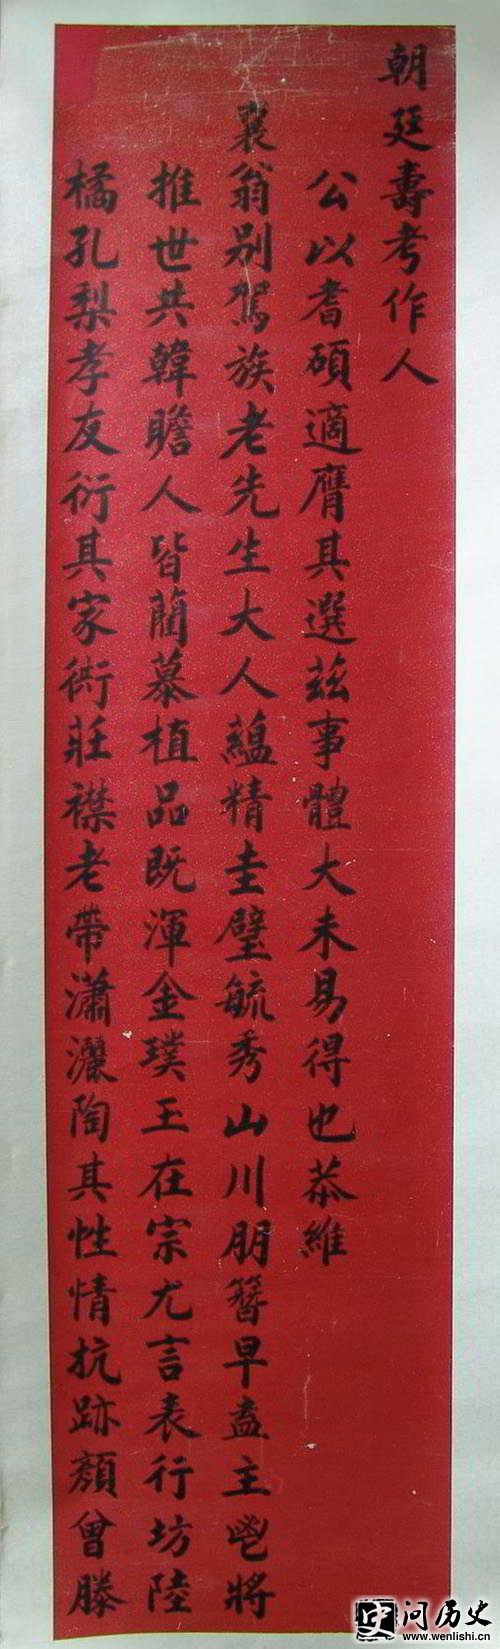 朝廷壽考作人
公以耆碩適膺其選茲事體大未易得也恭維
襄翁別駕族老先生大人蘊精圭璧毓秀山川朋簪早盍主鬯將
推世共韓瞻人皆藺慕植品既渾金璞玉在宗尤言表行坊陸
橘孔梨孝友衍其家衖莊襟老帶瀟灑陶其性情抗跡顏曾勝
问历史
www.wenlishi.cn